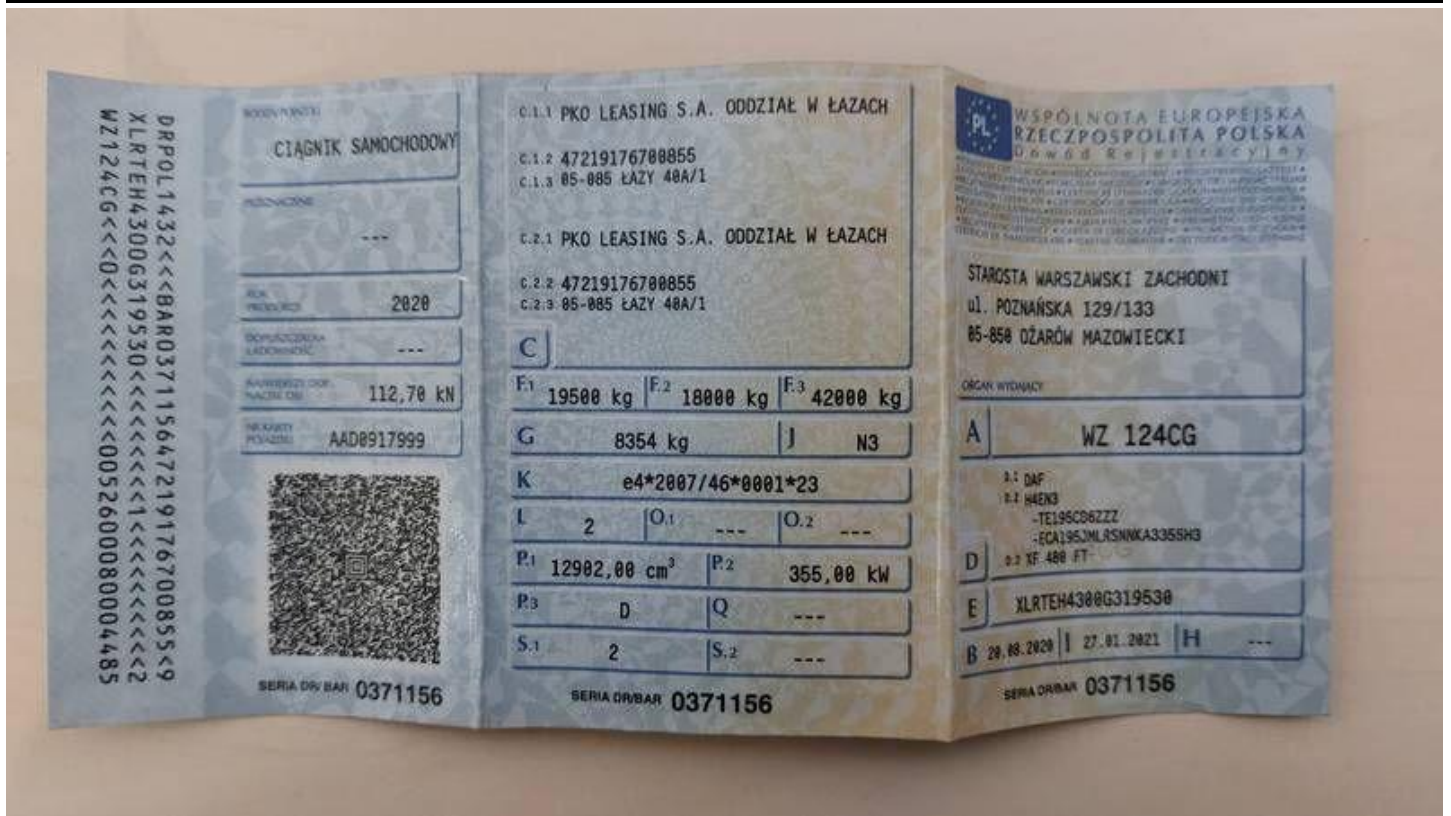 DRPOL1432<<<BAR037115647219176700855<9
XLRTEH4300G319530<<<<<<<<1<<<<<<<<2
WZ124CG<<<0<<<<<<<<<<<0052600080004485
RODZAJ POJAZDU
CIĄGNIK SAMOCHODOWY
PRZEZNACZENIE
---
ROK
PRODUKCJI
2020
DOPUSZCZALNA
ŁADOWNOŚĆ
---
NAJWIĘKSZY DOP.
NACISK OSI
112,70 kN
NR KARTY
POJAZDU
AAD0917999
SERIA DR/BAR 0371156
C.1.1 PKO LEASING S.A. ODDZIAŁ W ŁAZACH
C.1.2 47219176700855
C.1.3 05-085 ŁAZY 40A/1
C.2.1 PKO LEASING S.A. ODDZIAŁ W ŁAZACH
C.2.2 47219176700855
C.2.3 05-085 ŁAZY 40A/1
C
F.1 19500 kg F.2 18000 kg F.3 42000 kg
G 8354 kg J N3
K e4*2007/46*0001*23
L 2 O.1 --- O.2 ---
P.1 12902,00 cm³ P.2 355,00 kW
P.3 D Q ---
S.1 2 S.2 ---
SERIA DR/BAR 0371156
PL
WSPÓLNOTA EUROPEJSKA
RZECZPOSPOLITA POLSKA
Dowód Rejestracyjny
STAROSTA WARSZAWSKI ZACHODNI
ul. POZNAŃSKA 129/133
05-850 OŻARÓW MAZOWIECKI
ORGAN WYDAJĄCY
A WZ 124CG
D.1 DAF
D.2 H4EN3
-TE195CD6ZZZ
-ECA195JMLRSNNKA3355H3
D D.3 XF 480 FT
E XLRTEH4300G319530
B 20.08.2020 I 27.01.2021 H ---
SERIA DR/BAR 0371156